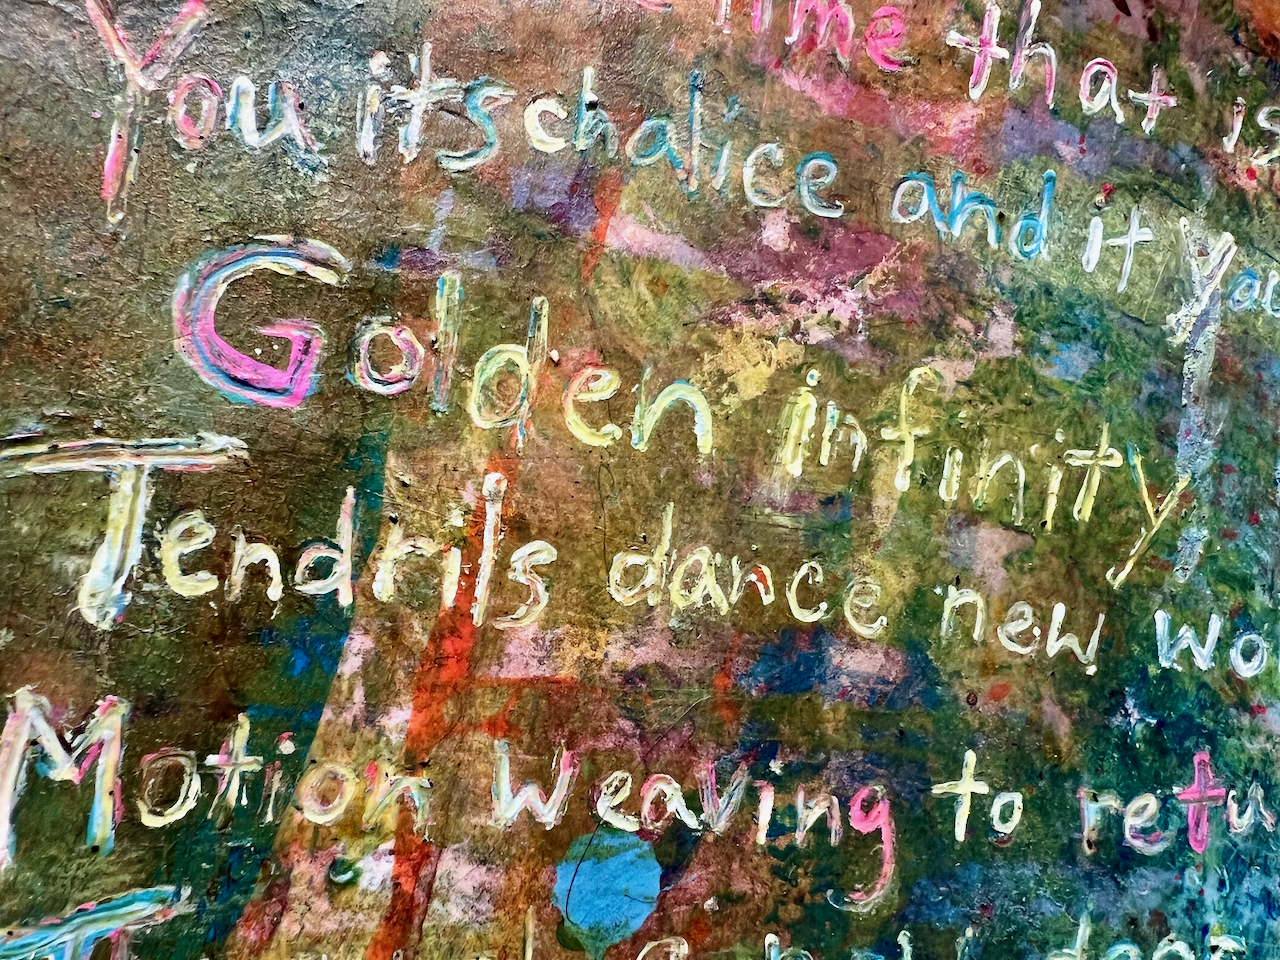 time that is
You its chalice and it You
Golden infinity
Tendrils dance new wo
Motion weaving to retu